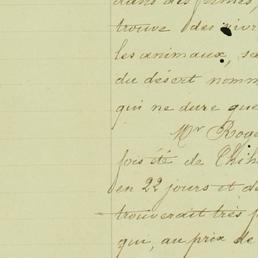 dans des fermes,
trouve des vivr
les animaux, sa
du désert nomm
qui ne dure que
Mr Roge
fois été de Chih
en 22 jours et de
trouverait très f
qui, au prix de